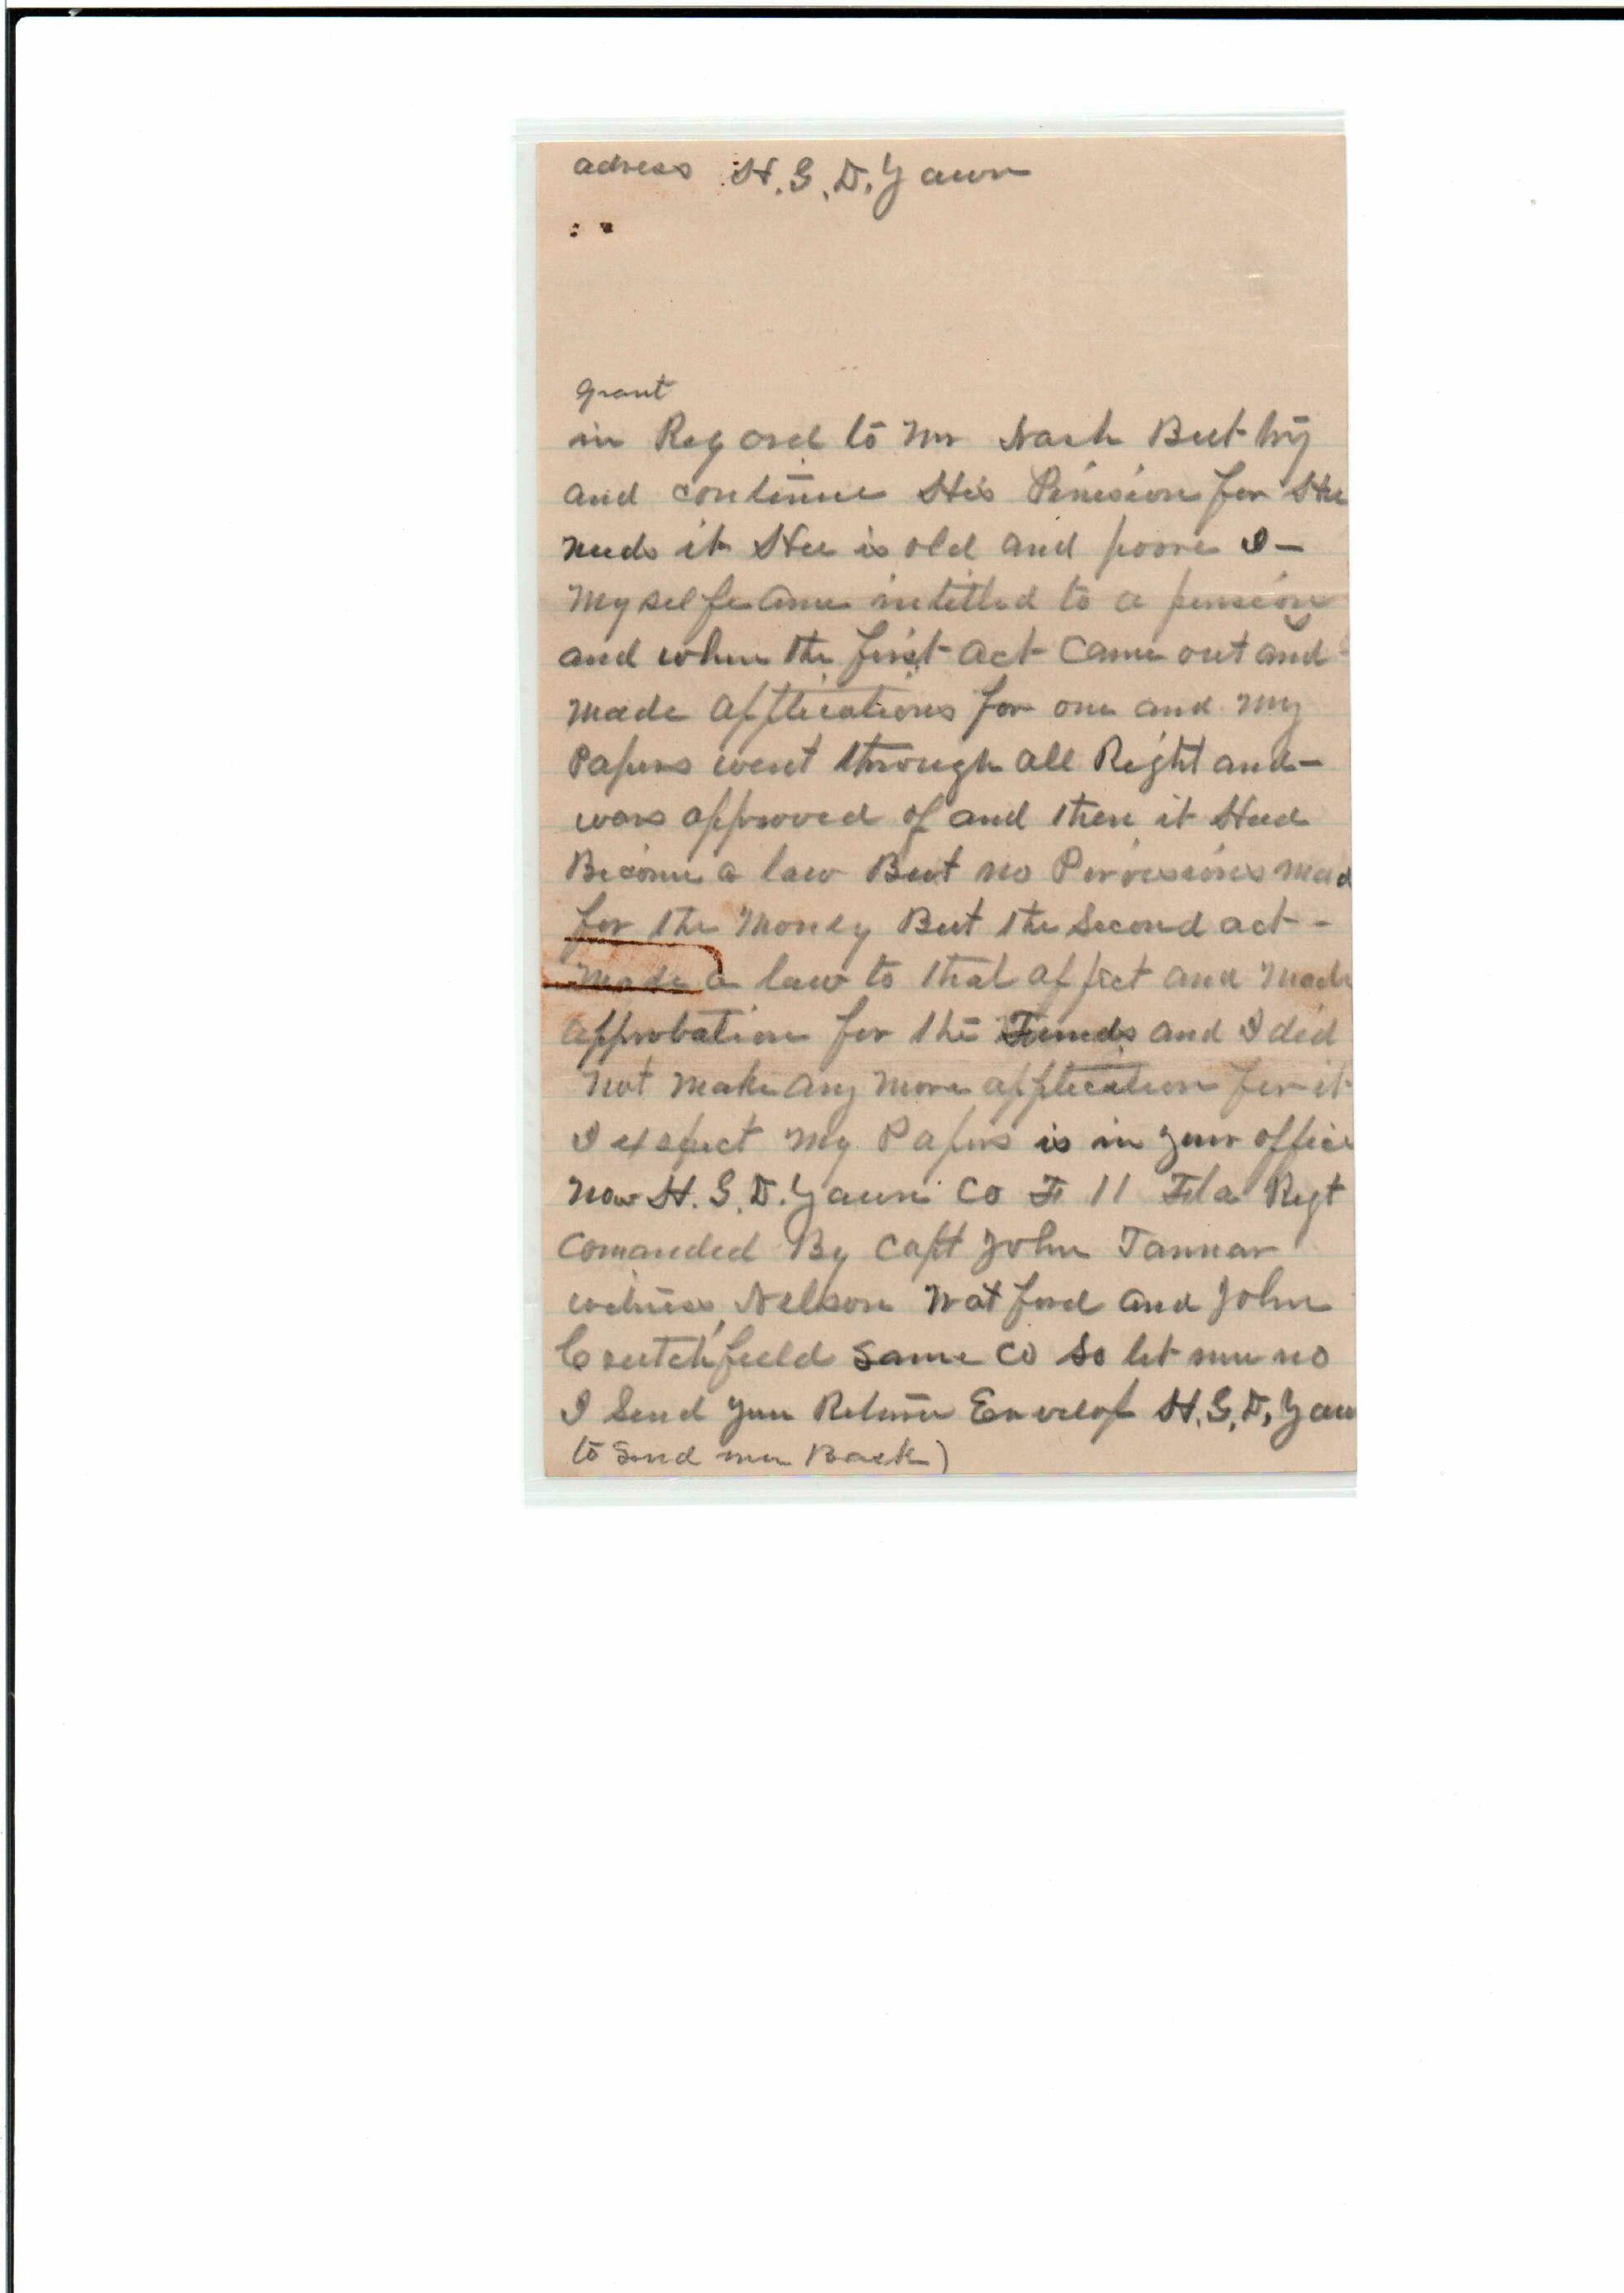 adress H. G. D. Yawn
grant
in Regard to Mr Nash But try
and continue His Pinision for Hee
needs it Hee is old and poore I -
My selfe ame intitled to a pension
and when the first act Came out and
made applications for one and my
Papers went through all Right and -
wars approved of and then it Had
Become a law But no Porvisions mad
for the Money But the Second act -
Made a law to that affect and Made
approbation for the Funds and I did
not make any more application for it
I expect My Papers is in your office
Now H. G. D. Yawn Co F 11 Fla Regt
Comanded By Capt John Tannar
witness, Nelson Watford and John
Crutchfield Same Co So let mee no
I Send you Return Envelop H. G. D. Yaw
to Send mee Back)